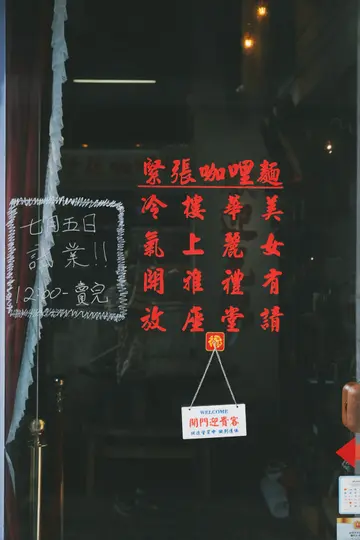 緊張咖哩麵
美女有請
華麗禮堂
樓上雅座
冷氣開放
七月五日
試業!!
12:00-賣完
WELCOME
開門迎賓客